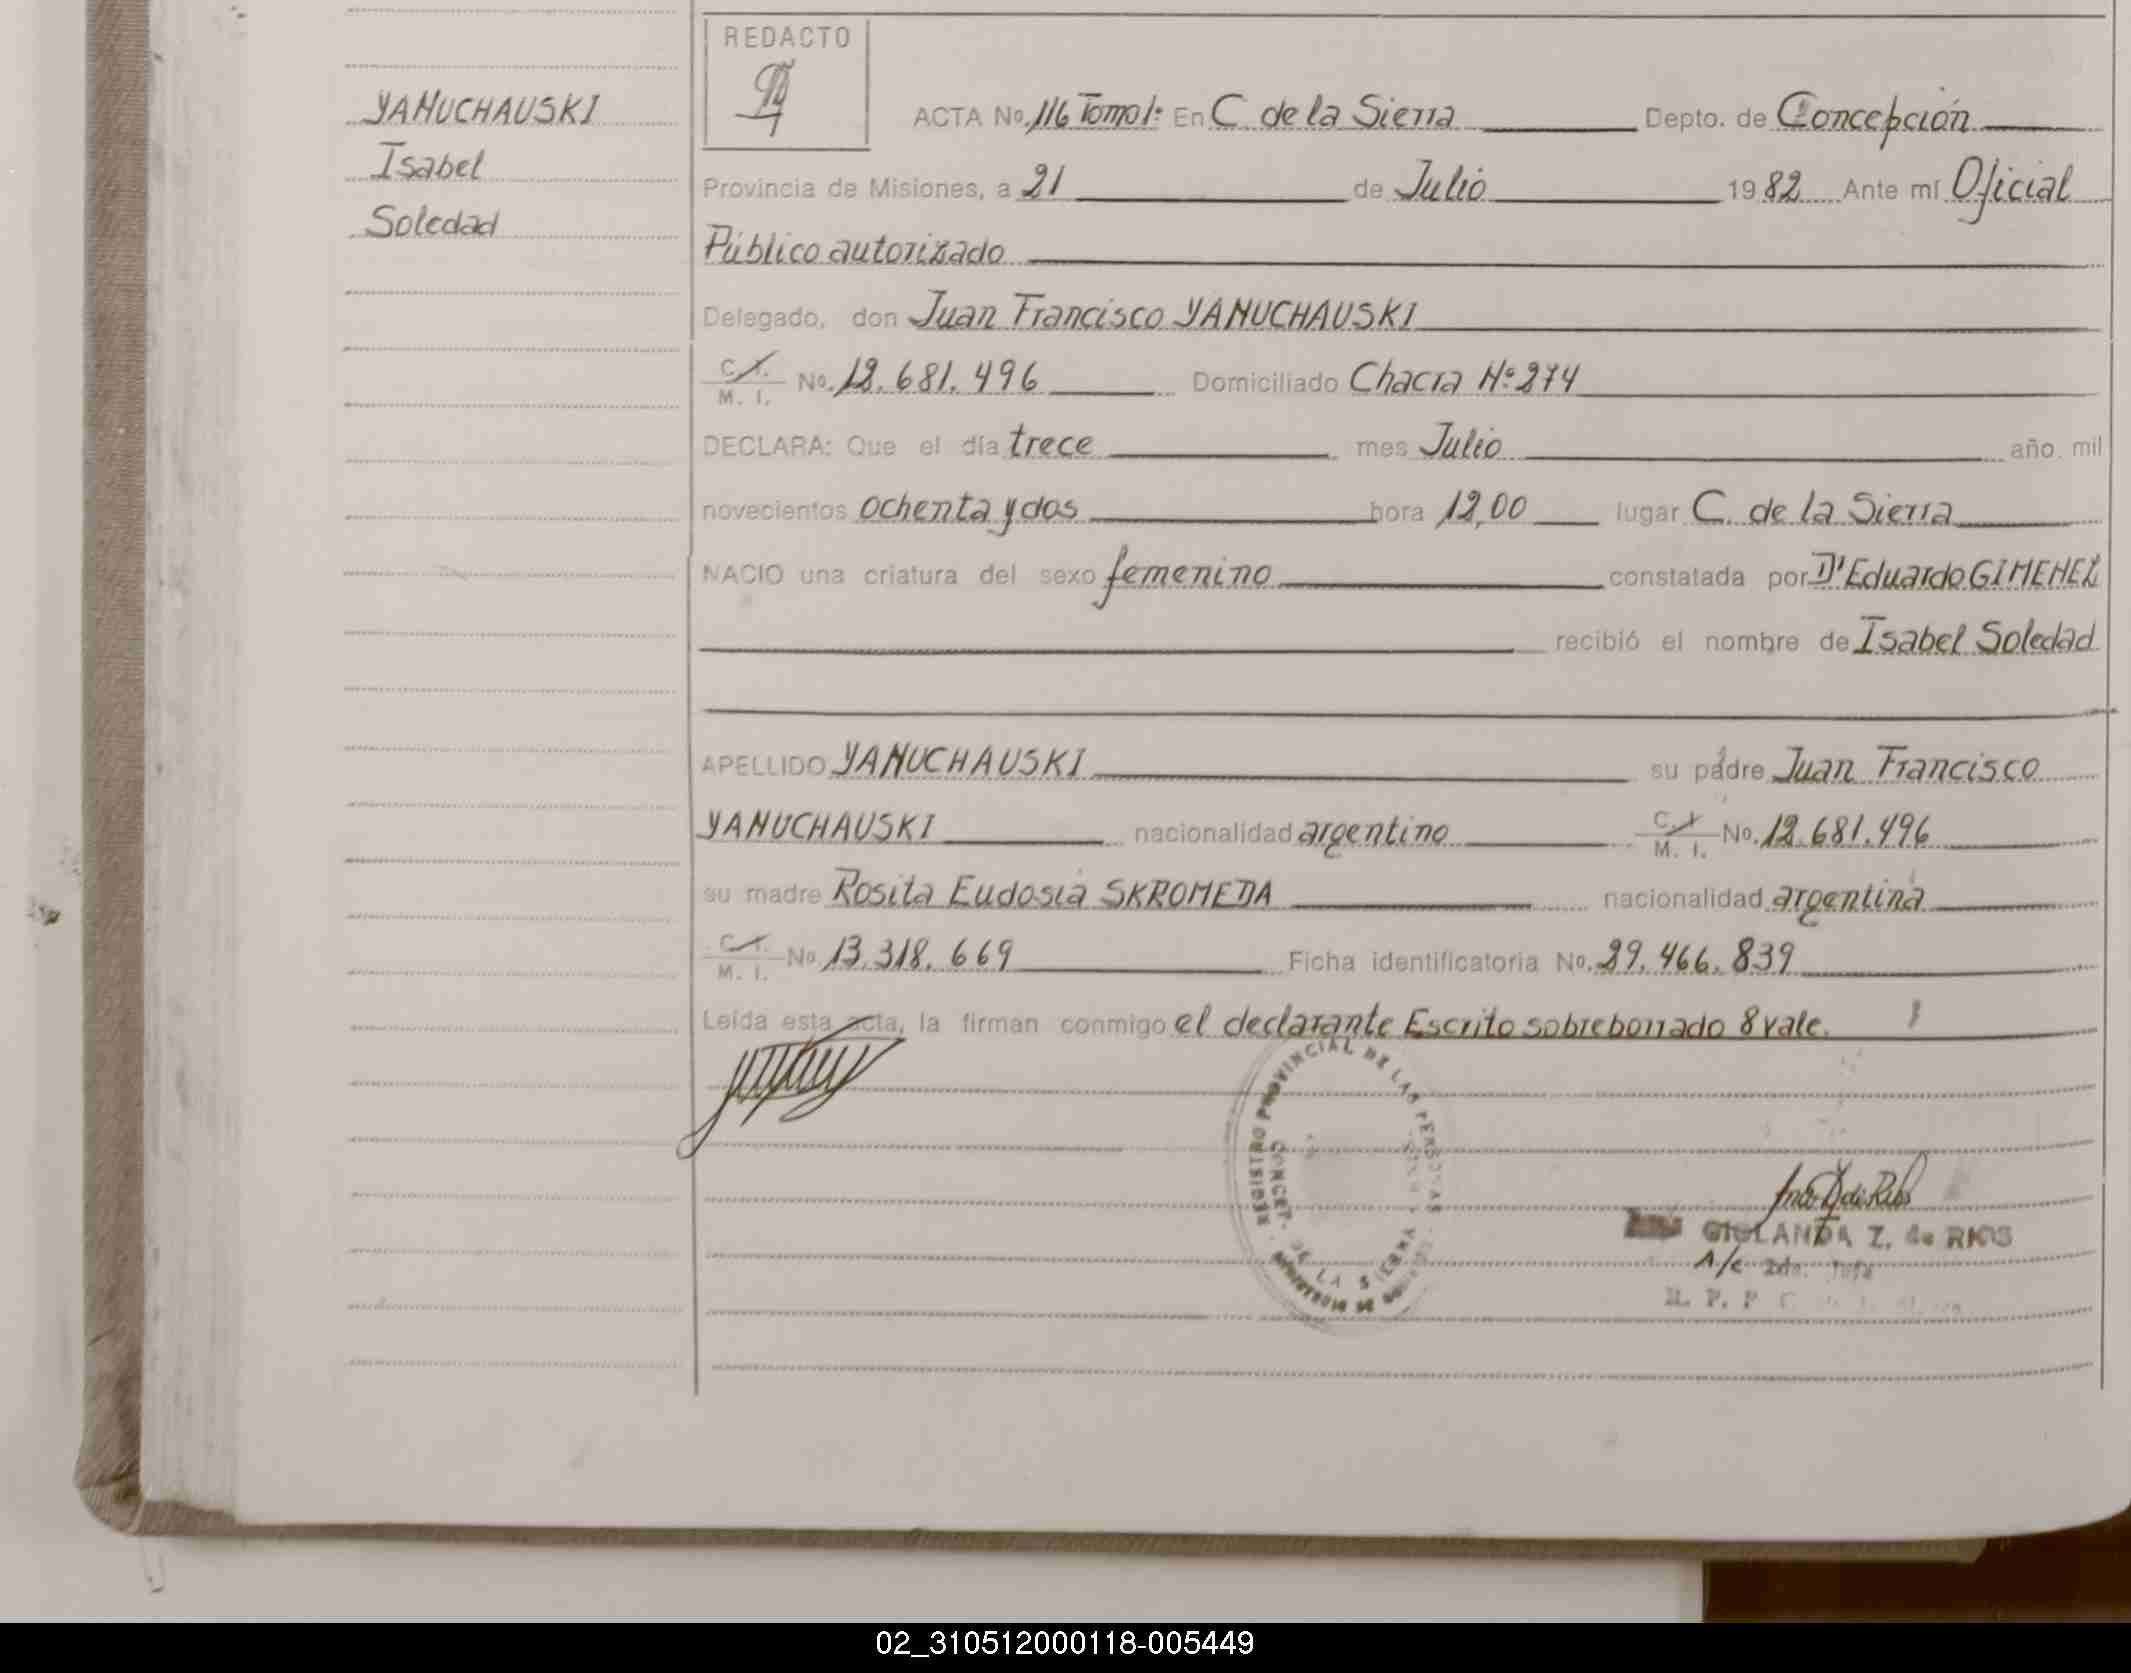 YANUCHAUSKI
Isabel
Soledad
REDACTO
ACTA No. 116 Tomo 1º En C. de la Sierra Depto. de Concepción
Provincia de Misiones, a 21 de Julio 1982 Ante mí Oficial
Público autorizado
Delegado, don Juan Francisco YANUCHAUSKI
C. I. M. I. No. 12.681.496 Domiciliado Chacra Nº 274
DECLARA: Que el día trece mes Julio año mil
novecientos ochenta y dos hora 12,00 lugar C. de la Sierra
NACIO una criatura del sexo femenino constatada por Dr Eduardo GIMENEZ
recibió el nombre de Isabel Soledad
APELLIDO YANUCHAUSKI su padre Juan Francisco
YANUCHAUSKI nacionalidad argentino C. I. M. I. No. 12.681.496
su madre Rosita Eudosia SKROMEDA nacionalidad argentina
C. I. M. I. No. 13.318.669 Ficha identificatoria No. 29.466.839
Leída esta acta, la firman conmigo el declarante Escrito sobreborrado 8 vale.
REGISTRO PROVINCIAL DE LAS PERSONAS
CONCEP. DE LA SIERRA
MINISTERIO DE GOBIERNO
GIOLANDA Z. de RIOS
A/c 2da. Jefe
R. P. P.
02_310512000118-005449